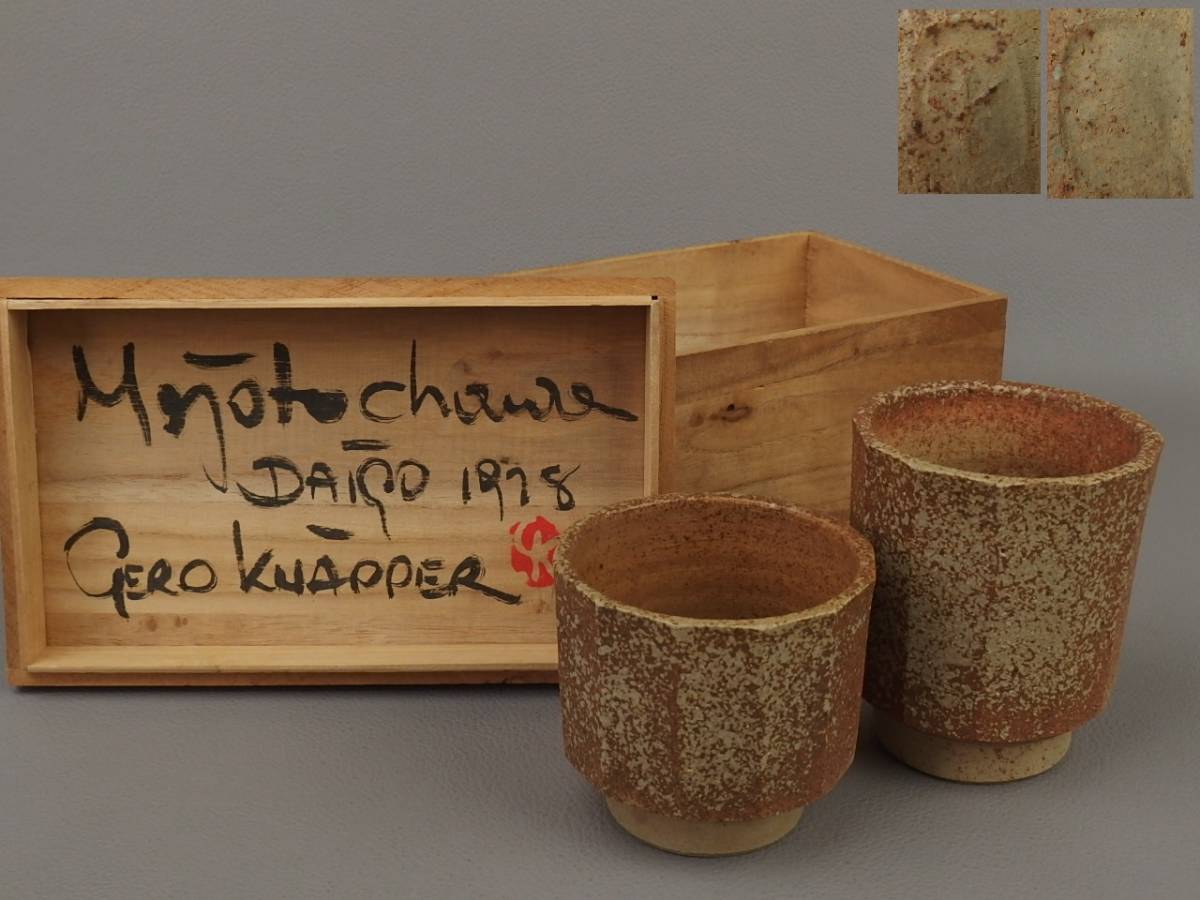 Meōto chawan
DAIGO 1978
GERO KNAPPER